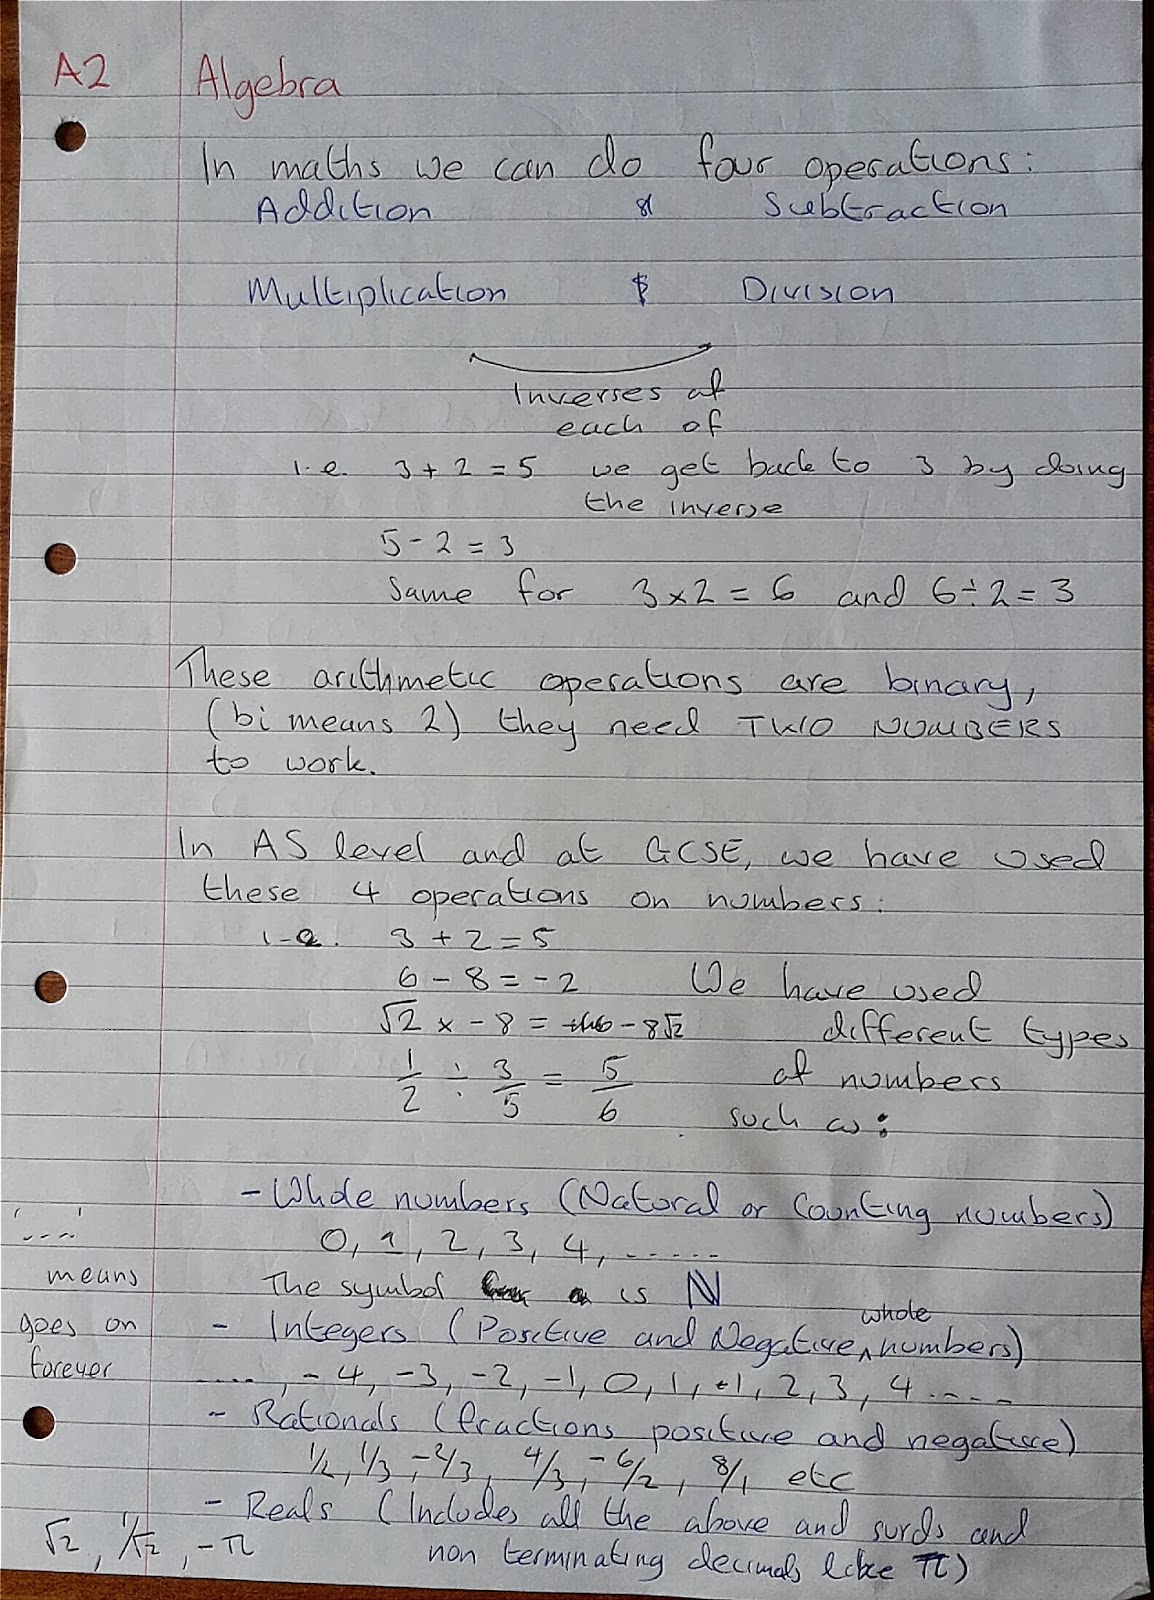 A2 Algebra
In maths we can do four operations:
Addition & Subtraction
Multiplication & Division
Inverses of
each of
i.e. 3 + 2 = 5 we get back to 3 by doing
the inverse
5 - 2 = 3
Same for 3 x 2 = 6 and 6 ÷ 2 = 3
These arithmetic operations are binary,
(bi means 2) they need TWO NUMBERS
to work.
In AS level and at GCSE, we have used
these 4 operations on numbers:
i.e. 3 + 2 = 5
6 - 8 = -2 We have used
√2 x -8 = -8√2 different types
1/2 ÷ 3/5 = 5/6 of numbers
such as:
- Whole numbers (Natural or Counting numbers)
0, 1, 2, 3, 4, ......
The symbol is ℕ
- Integers (Positive and Negative whole numbers)
...., -4, -3, -2, -1, 0, 1, +1, 2, 3, 4 ....
- Rationals (fractions positive and negative)
1/2, 1/3, -2/3, 4/3, -6/2, 8/1 etc
- Reals (Includes all the above and surds and
non terminating decimals like π)
'....'
means
goes on
forever
√2, 1/√2, -π